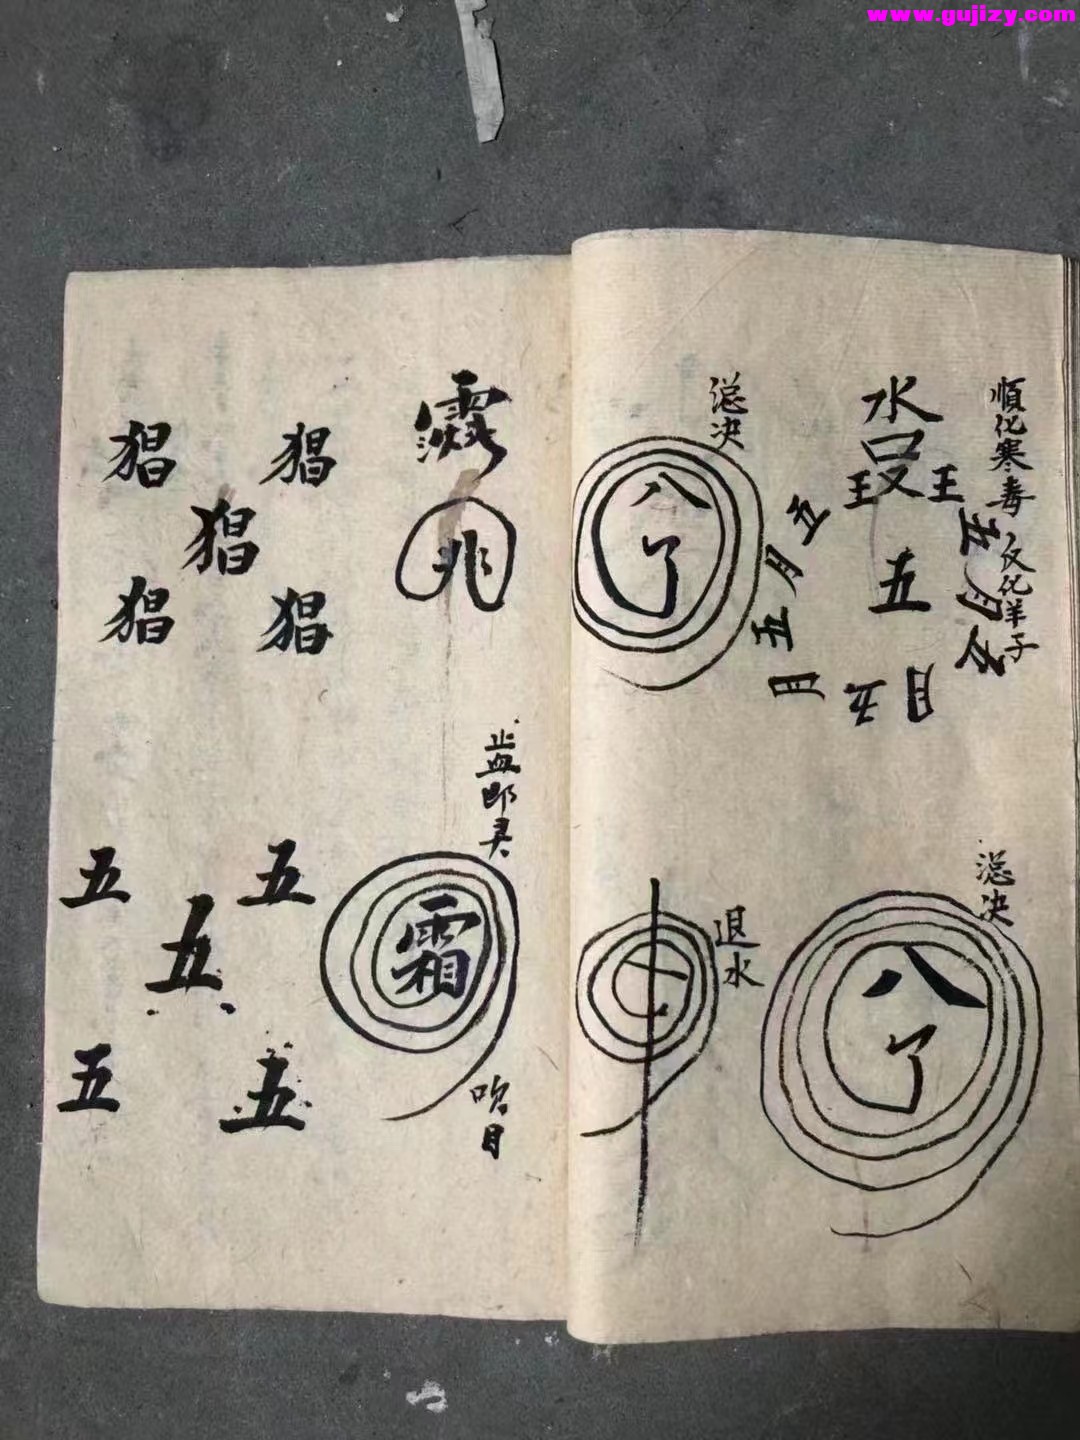 www.gujizy.com
順化寒毒 反化羊子
水
王 王
五
五月五
五月五月
五月
总决
八
了
总决
八
了
退水
兆
止血即灵
霜
吹目
猖 猖
猖
猖 猖
五 五
五
五 五